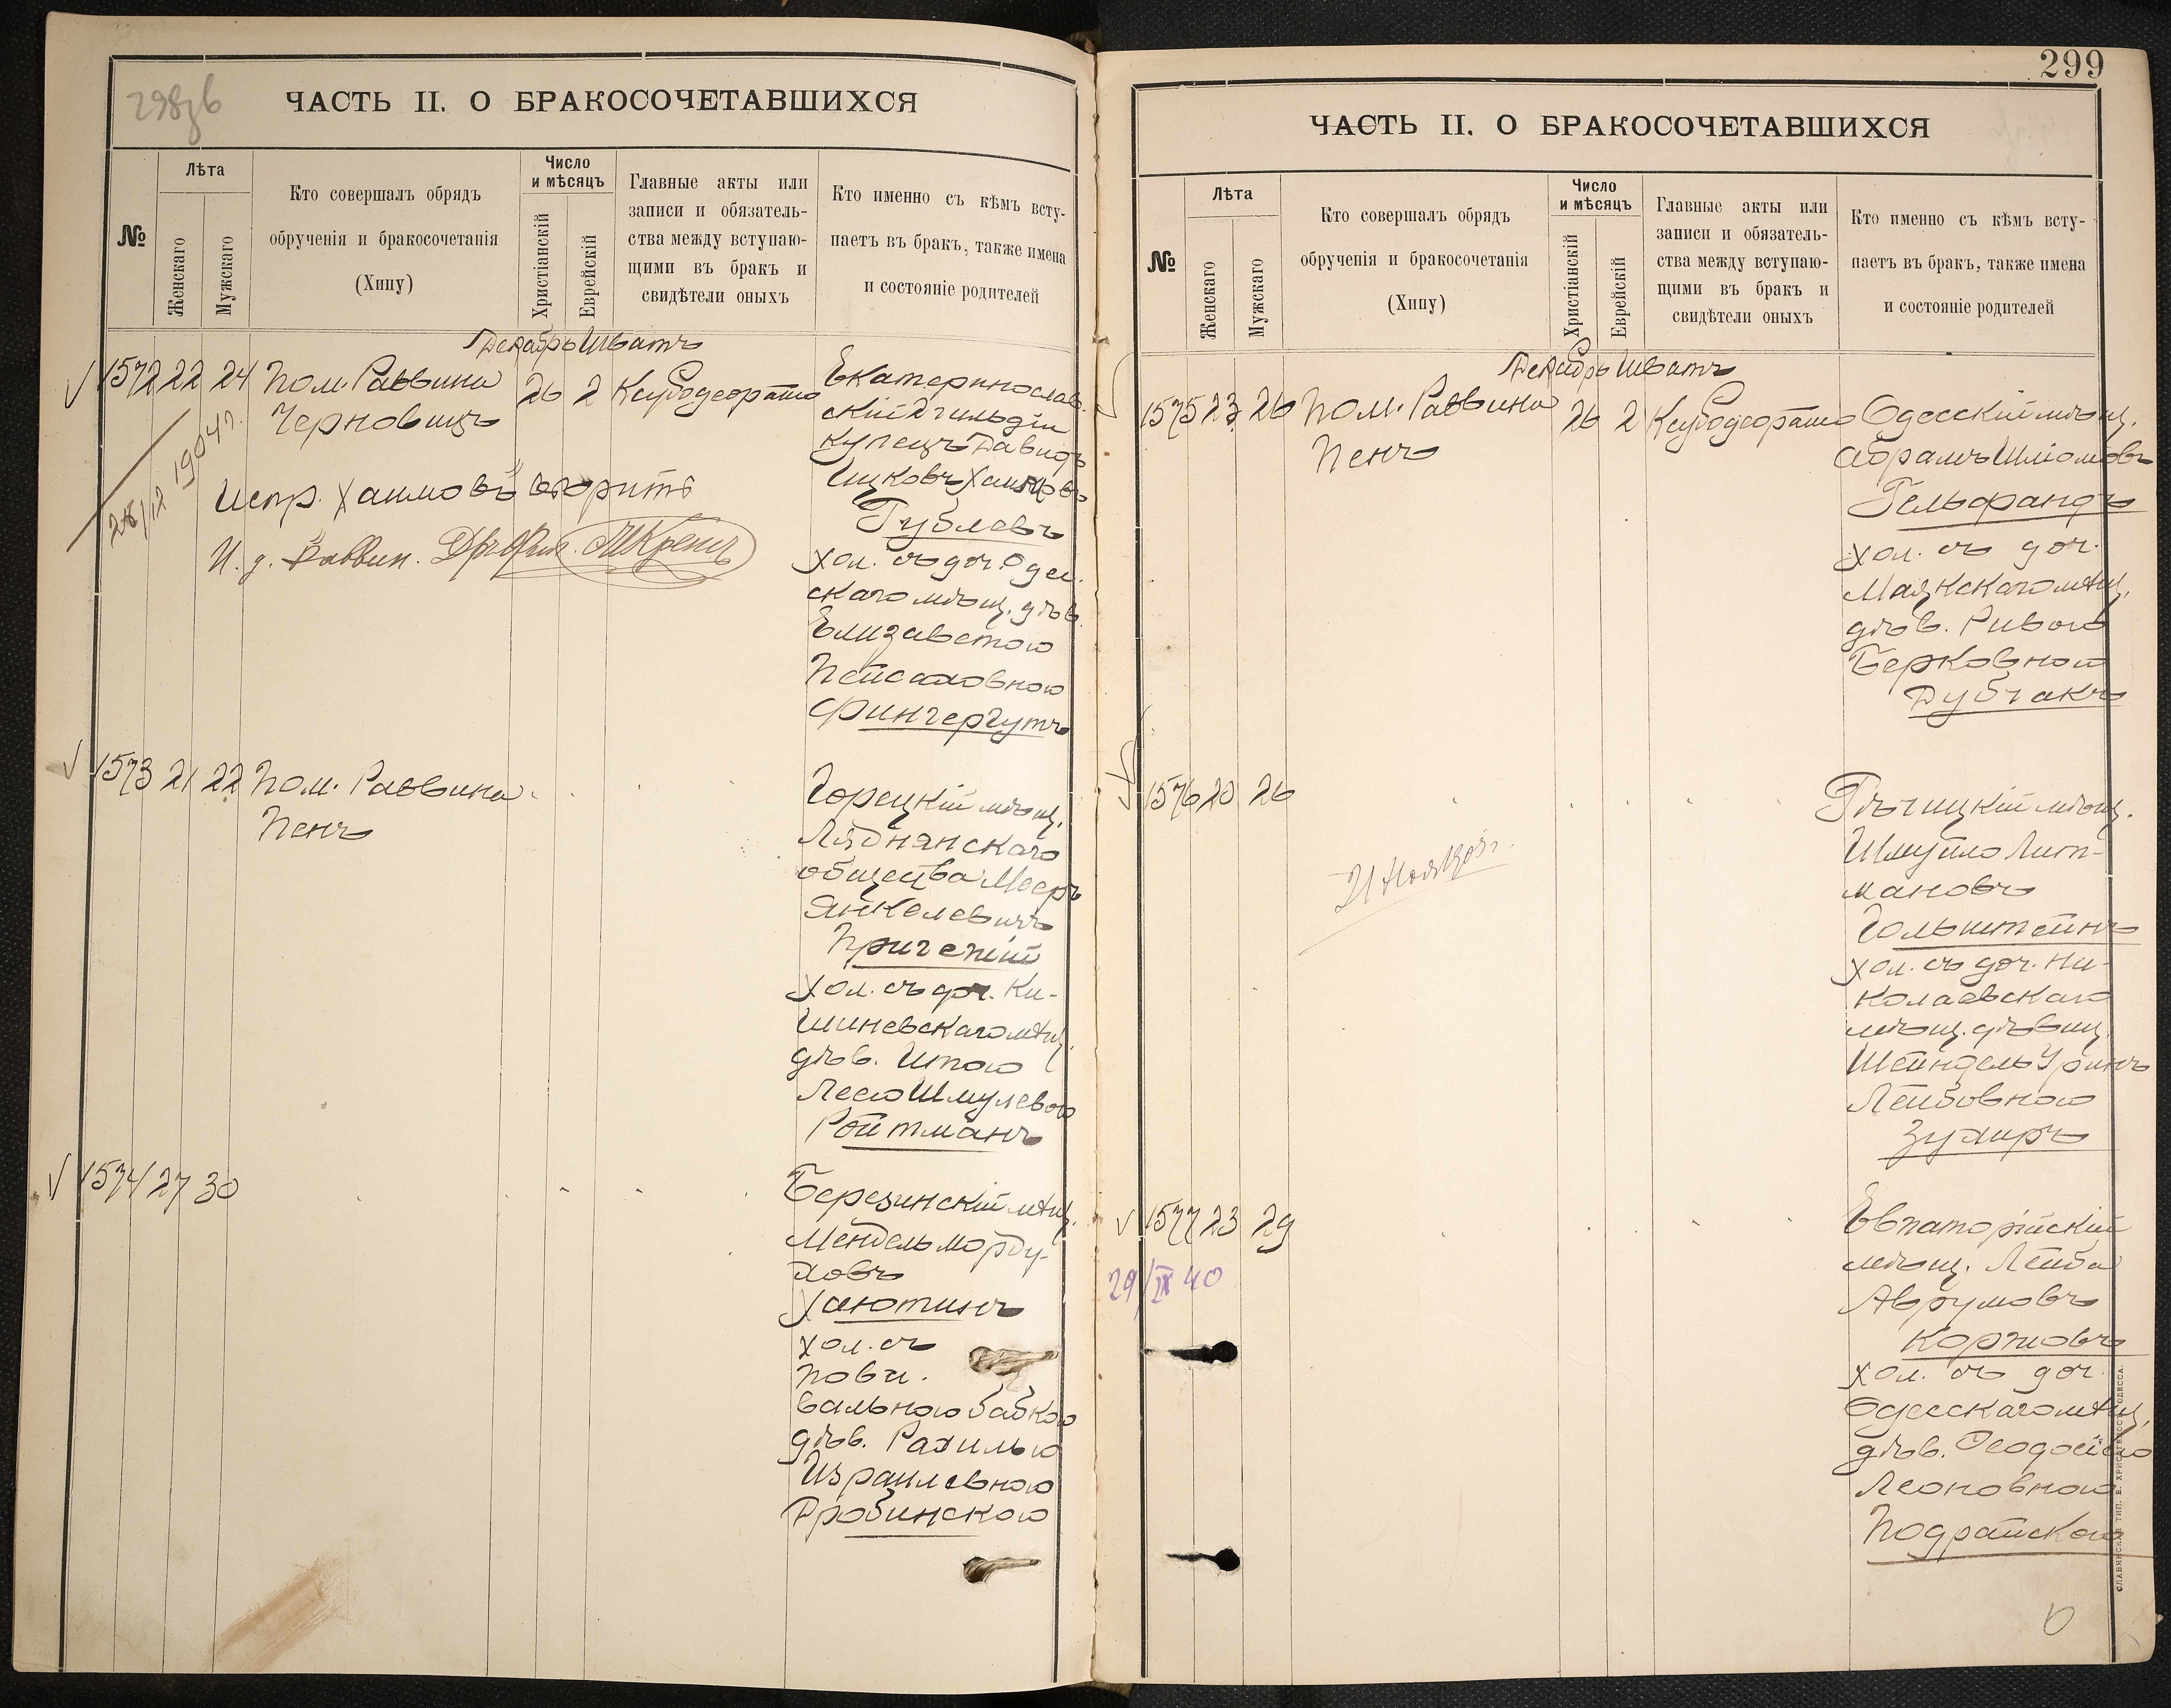 ЧАСТЬ II. О БРАКОСОЧЕТАВШИХСЯ
№
Лѣта
Женскаго
Мужскаго
Кто совершалъ обрядъ
обрученія и бракосочетанія
(Хипу)
Число
и мѣсяцъ
Христіанскій
Еврейскій
Главные акты или
записи и обязатель-
ства между вступаю-
щими въ бракъ и
свидѣтели оныхъ
Кто именно съ кѣмъ всту-
паетъ въ бракъ, также имена
и состояніе родителей
Декабрь Шватъ
1572 22 24 Пом. Раввина
Черновицъ
26 2
Екатеринослав.
скій 2 гильдіи
купецъ Давидъ
Ицковъ Хаимовъ
Гублевъ
хол. съ доч. Одес.
скаго мѣщ. дѣв.
Елизаветою
Пейсаховною
Фингергутъ
28/12 1904 г.
Испр. "Хаимовъ" вѣрить
И. д. Раввин.
1573 21 22 Пом. Раввина
Пенъ
Горецкій мѣщ.
Ляднянскаго
общества Мееръ
Янкелевичъ
хол. съ доч. Ки-
шиневскаго мѣщ.
дѣв. Итою
Леею Шмулевою
Ройтманъ
1574 27 30
Березинскій мѣщ.
Мендель Морду-
ховъ
Хаютинъ
хол. съ
пови.
вальною бабкою
дѣв. Рахилью
Израилевною
Дробинскою
299
ЧАСТЬ II. О БРАКОСОЧЕТАВШИХСЯ
№
Лѣта
Женскаго
Мужскаго
Кто совершалъ обрядъ
обрученія и бракосочетанія
(Хипу)
Число
и мѣсяцъ
Христіанскій
Еврейскій
Главные акты или
записи и обязатель-
ства между вступаю-
щими въ бракъ и
свидѣтели оныхъ
Кто именно съ кѣмъ всту-
паетъ въ бракъ, также имена
и состояніе родителей
Декабрь Шватъ
1575 23 26 Пом. Раввина
Пенъ
26 2
Одесскій мѣщ.
Абрамъ Шліомовъ
Гельфандъ
хол. съ доч.
Маякскаго мѣщ.
дѣв. Ривою
Берковною
Дубчакъ
1576 20 26
Рѣчицкій мѣщ.
Шмуйло Лип-
мановъ
Гольштейнъ
хол. съ доч. Ни-
колаевскаго
мѣщ. дѣвиц.
Шейндель Уринъ
Лейбовною
1577 23 29
29/IX 40
Евпаторійскій
мѣщ. Лейба
Аврумовъ
Коржовъ
хол. съ доч.
Одесскаго мѣщ.
дѣв. Ѳеодосіею
Леоновною
Подрайскою
СЛАВЯНСКАЯ ТИП. Е. ХРИСОГЕЛОСЪ ОДЕССА.